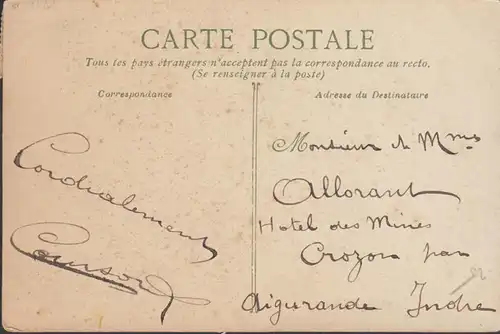 CARTE POSTALE
Tous les pays étrangers n'acceptent pas la correspondance au recto.
(Se renseigner à la poste)
Correspondance
Adresse du Destinataire
Cordialement
Monsieur & Mme
Allorant
Hotel des Mines
Crozon par
Aigurande Indre